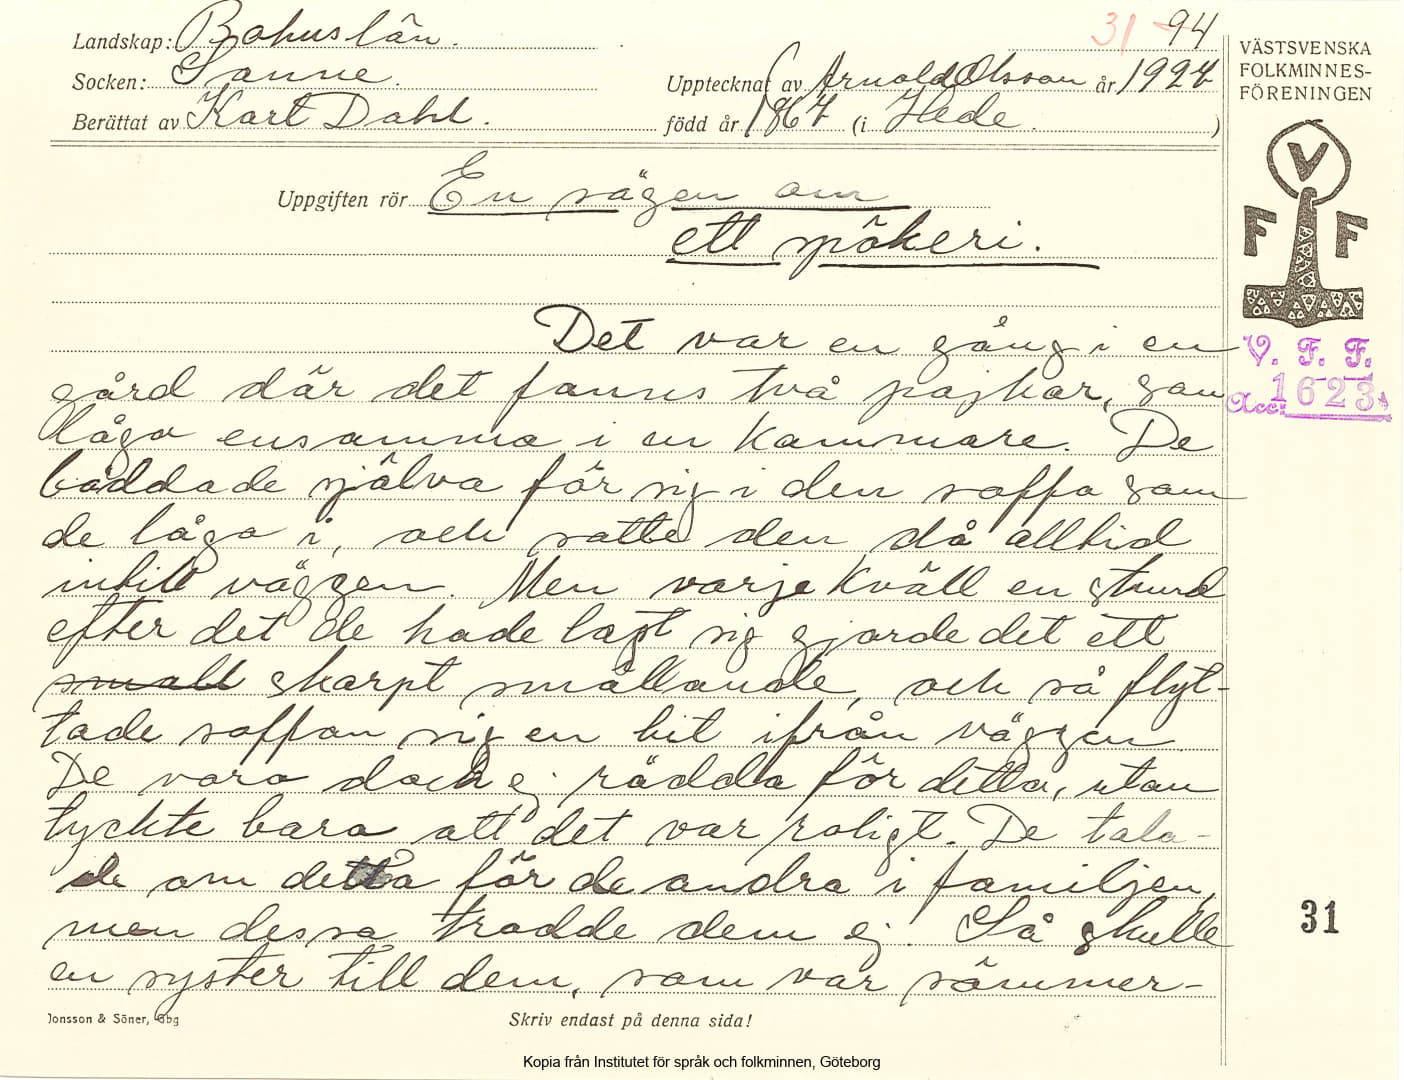 Landskap: Bohuslän.
31 94
Socken: Sanne.
Upptecknat av Arnold Olsson år 1927
Berättat av Karl Dahl.
född år 1867 (i Hede.)
VÄSTSVENSKA
FOLKMINNES-
FÖRENINGEN
V
F F
Uppgiften rör En sägen om
ett spökeri.
V. F. F.
Acc: 1623
Det var en gång i en
gård där det fanns två pojkar, som
lågo ensamma i en kammare. De
bäddade själva för sig i den soffa som
de lågo i, och satte den då alltid
intill väggen. Men varje kväll en stund
efter det de hade lagt sig gjorde det ett
small skarpt smällande, och så flyt-
tade soffan sig en bit ifrån väggen
De voro dock ej rädda för detta, utan
tyckte bara att det var roligt. De tala-
de om detta för de andra i familjen,
men dessa trodde dem ej. Så skulle
en syster till dem, som var sömmer-
31
Jonsson & Söner, Gbg
Skriv endast på denna sida!
Kopia från Institutet för språk och folkminnen, Göteborg